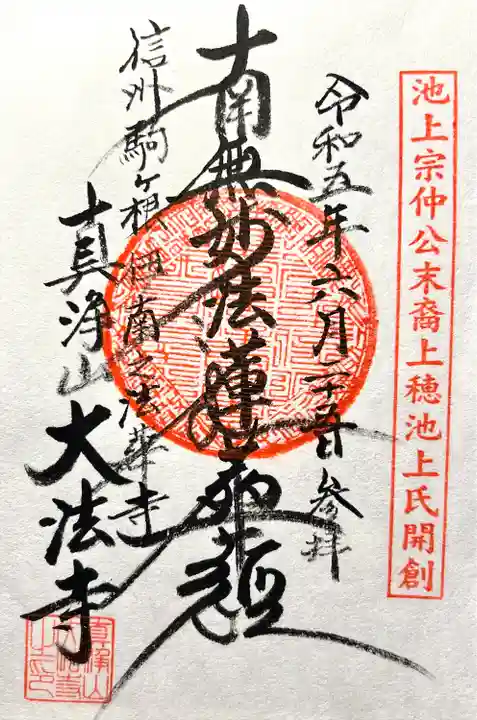 池上宗仲公末裔上穂池上氏開創
令和五年六月二十五日 参拝
南無妙法蓮華経
信州駒ヶ根 南之法華寺
真浄山 大法寺
真浄山
大法寺
之印